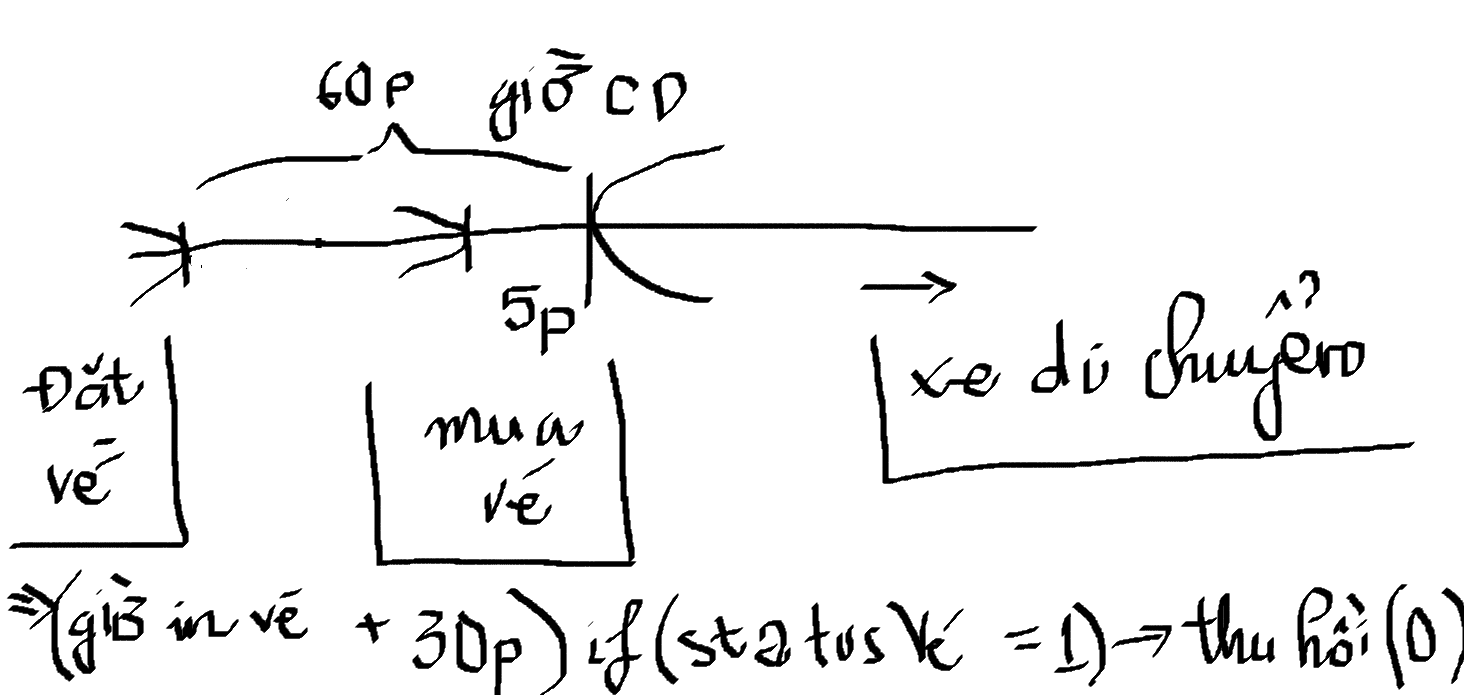 60p giờ CD
5p
Đặt
vé
mua
vé
xe di chuyển
=> (giờ in vé + 30p) if (status vé = 1) → thu hồi (0)